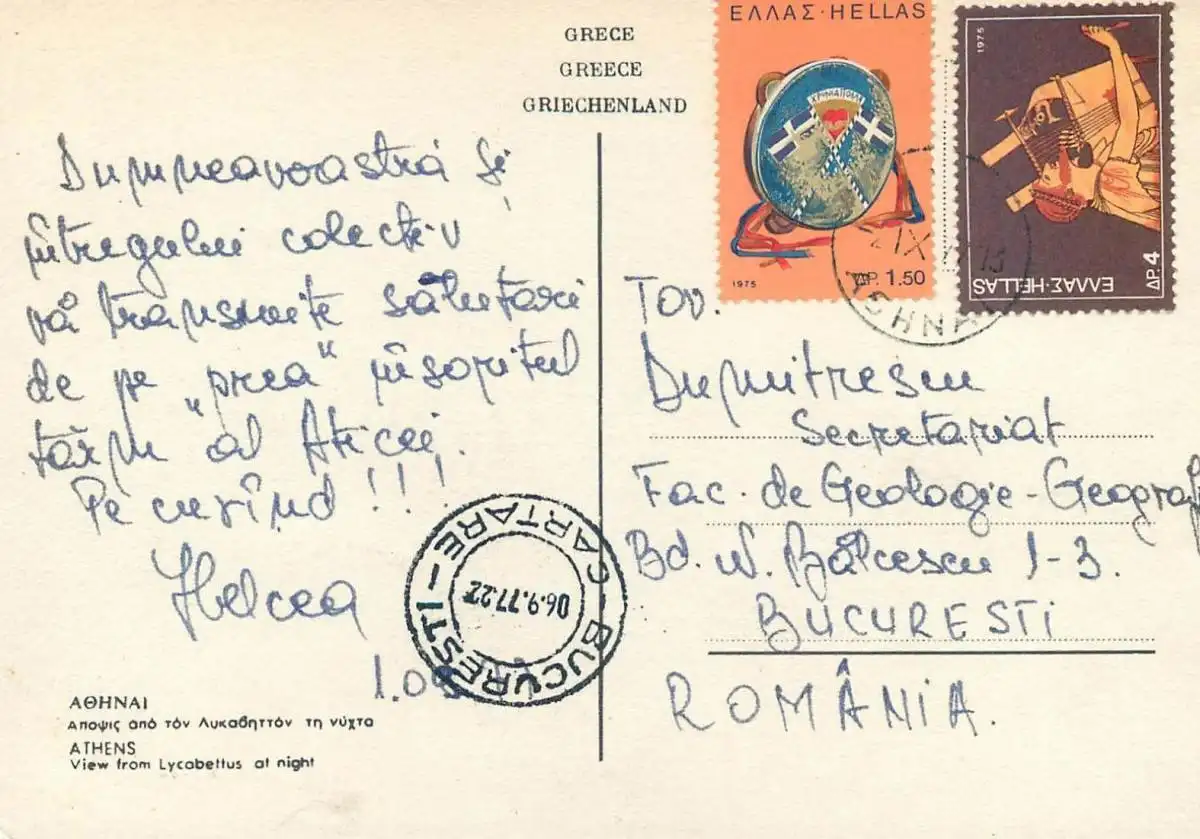 GRECE
GREECE
GRIECHENLAND
ΕΛΛΑΣ·HELLAS
1975
ΔΡ. 1.50
1975
ΕΛΛΑΣ-HELLAS
ΔΡ. 4
ΑΘΗΝΑ
Dumneavoastră și
întregului colectiv
vă transmite salutări
de pe „prea" însoritul
tărîm al Aticei.
Pe curînd!!!
1.09
BUCUREȘTI - CARTARE -
06.9.77.22
Tov.
Dumitrescu
Secretariat
Fac. de Geologie-Geograf
Bd. N. Bălcescu 1-3.
BUCURESTI
ROMÂNIA.
ΑΘΗΝΑΙ
Αποψις από τόν Λυκαβηττόν τη νύχτα
ATHENS
View from Lycabettus at night